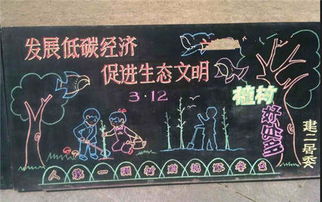 发展低碳经济
促进生态文明
3·12
植树
好处多
建二居委